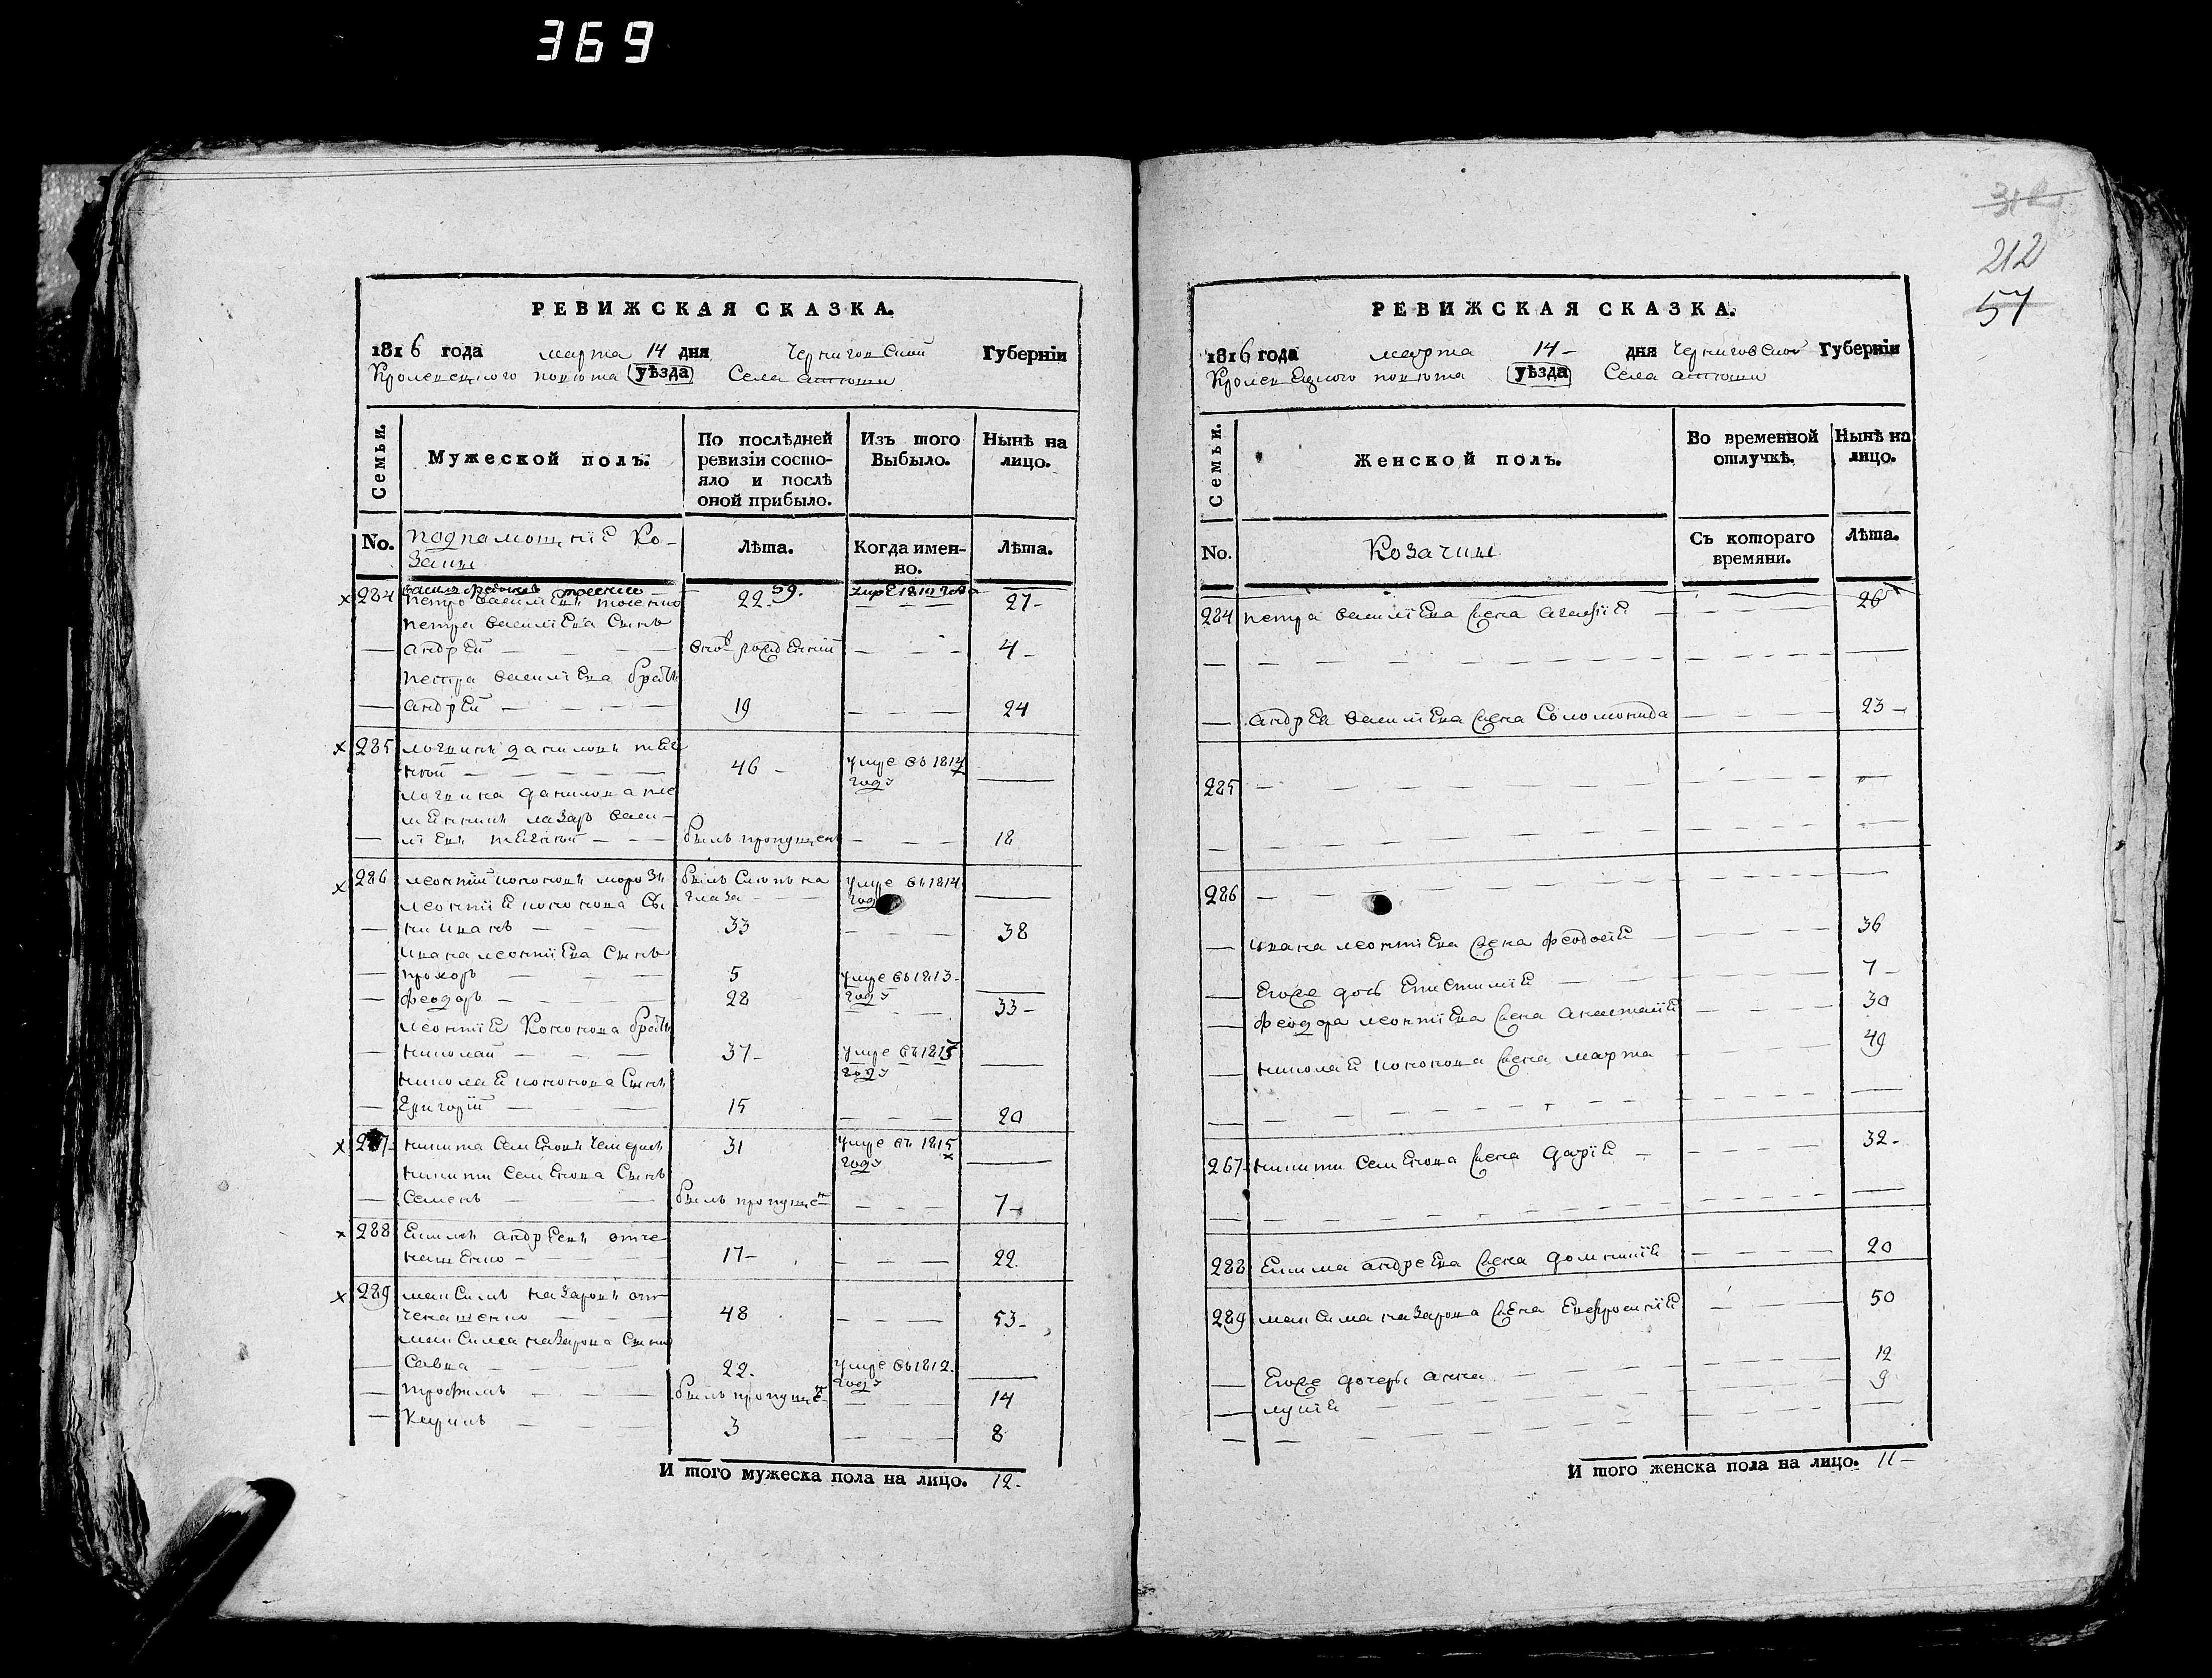 369
РЕВИЖСКАЯ СКАЗКА.
1816 года марта 14 дня Черниговской Губерніи
Кролевецкого повѣта (уѣзда) Села
Семьи.
Мужеской полъ.
По послѣдней ревизіи состо-
яло и послѣ оной прибыло.
Изъ того Выбыло.
Нынѣ на лицо.
No.
подпомощніе Ко-
заки
Лѣта.
Когда имен-
но.
Лѣта.
284 59. умре 1810 года
Петро василіевъ 22 27
петра василіева сынъ
андрей вновь рожденній 4
петра василіева братъ
андрей 19 24
285 логвинъ даниловъ
46 умре въ 1814 году
логвина данилова пле
менникъ лазар васи-
ліевъ былъ пропущенъ 18
286 леонтій кононовъ морозъ былъ слепъ на глаза умре въ 1814 году
леонтіе кононова сы
нъ иванъ 33 38
ивана леонтіева сынъ
прохоръ 5 умре въ 1813 году
феодоръ 28 33
леонтіе кононова братъ
николай 37 умре въ 1815 году
николае кононова сынъ
григорій 15 20
287 никита семеновъ 31 умре въ 1815 году
никити семенова сынъ
семенъ былъ пропущен 7
288 екимъ андреевъ отче
нашенко 17 22.
289 максимъ назаровъ от
ченашенко 48 53
максима назарова сынъ
савка 22. умре въ 1812. году
трофимъ былъ пропущен 14
кирилъ 3 8
И того мужеска пола на лицо. 12.
212
57
РЕВИЖСКАЯ СКАЗКА.
1816 года марта 14 дня Черниговской Губерніи
Кролевецкого повѣта (уѣзда) Села
Семьи.
Женской полъ.
Во временной отлучкѣ.
Нынѣ на лицо.
No.
Козачки
Съ котораго времяни.
Лѣта.
284 петра василіева жена агафіе 26
андрея василіева жена соломонида 23
285
286
ивана леонтіева жена феодосіе 36
егоже дочь епистиміе 7
феодора леонтіева жена анастасіе 30
николае кононова жена марта 49
267 никити семенова жена даріе 32
288 екима андреева жена домникіе 20
289 максима назарова жена евфросиніе 50
егоже дочеры анна 12
лукіе 9
И того женска пола на лицо. 11